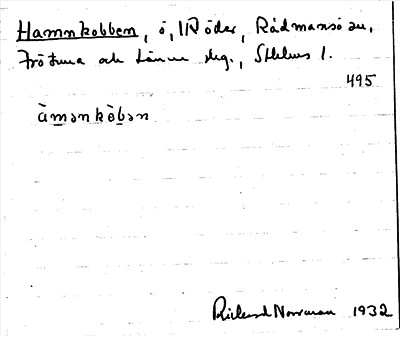 Hamnkobben, ö, i Röder, Rådmansö sn,
Frötuna och Länna skg., Sthlms l.
495
àmənkòbən
Rickard Norrman 1932